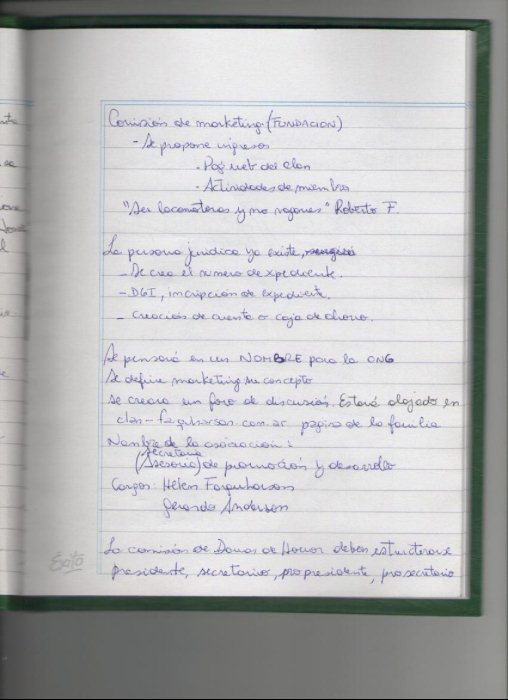 Comisión de marketing. (FUNDACION)
- Se propone ingresos
- Pág web del clan
- Actividades de miembros
"Ser locomotoras y no vagones" Roberto F.
La persona jurídica ya existe,
- Se crea el número de expediente.
- DGI, incripción de expediente.
- Creación de cuenta o caja de ahorro.
Se pensará en un NOMBRE para la ONG
Se define marketing su concepto
se creara un foro de discusión. Estará alojado en
clan-farquharson.com.ar pagina de la familia
Nombre de la asociación:
Secretaria
(Asesoria) de promoción y desarrollo
Cargos: Helen Farquharson
Gerardo Anderson
La comisión de Damas de Honor deben estructurarse
presidente, secretario, propresidente, prosecretario